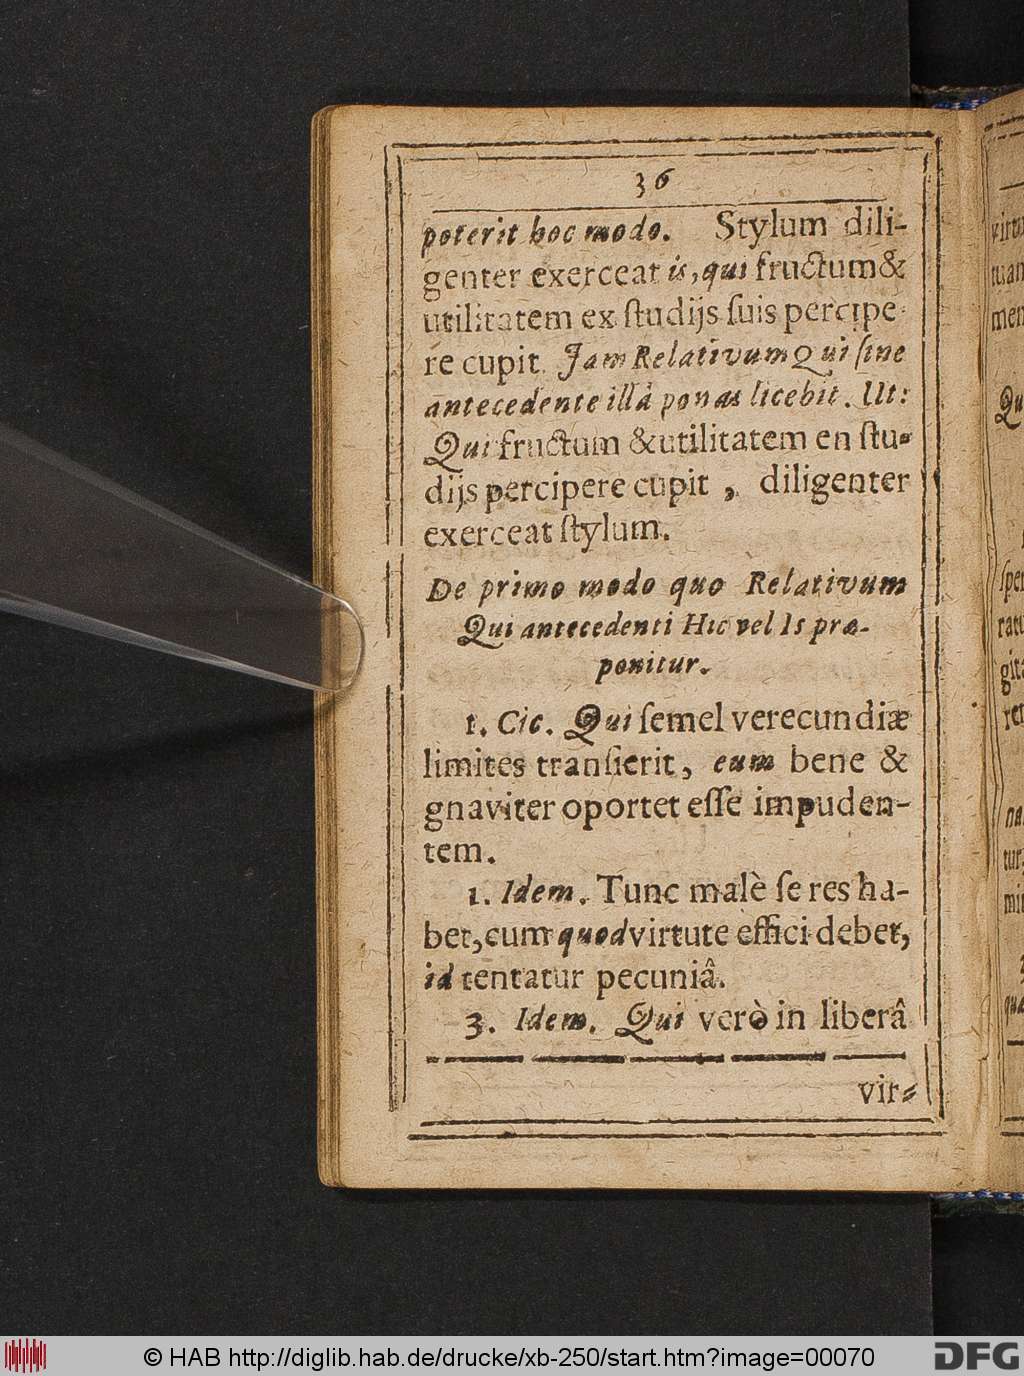 36
poterit hoc modo. Stylum dili-
genter exerceat is, qui fructum &
utilitatem ex ſtudijs ſuis percipe-
re cupit. Jam Relativum Qui ſine
antecedente illâ ponas licebit. Ut:
Qui fructum & utilitatem en ſtu-
dijs percipere cupit, diligenter
exerceat ſtylum.
De primo modo quo Relativum
Qui antecedenti Hic vel Is præ-
ponitur.
1. Cic. Qui ſemel verecundiæ
limites tranſierit, eum bene &
gnaviter oportet eſſe impuden-
tem.
1. Idem. Tunc malè ſe res ha-
bet, cum quod virtute effici debet,
id tentatur pecuniâ.
3. Idem. Qui verò in liberâ
vir-
© HAB http://diglib.hab.de/drucke/xb-250/start.htm?image=00070
DFG